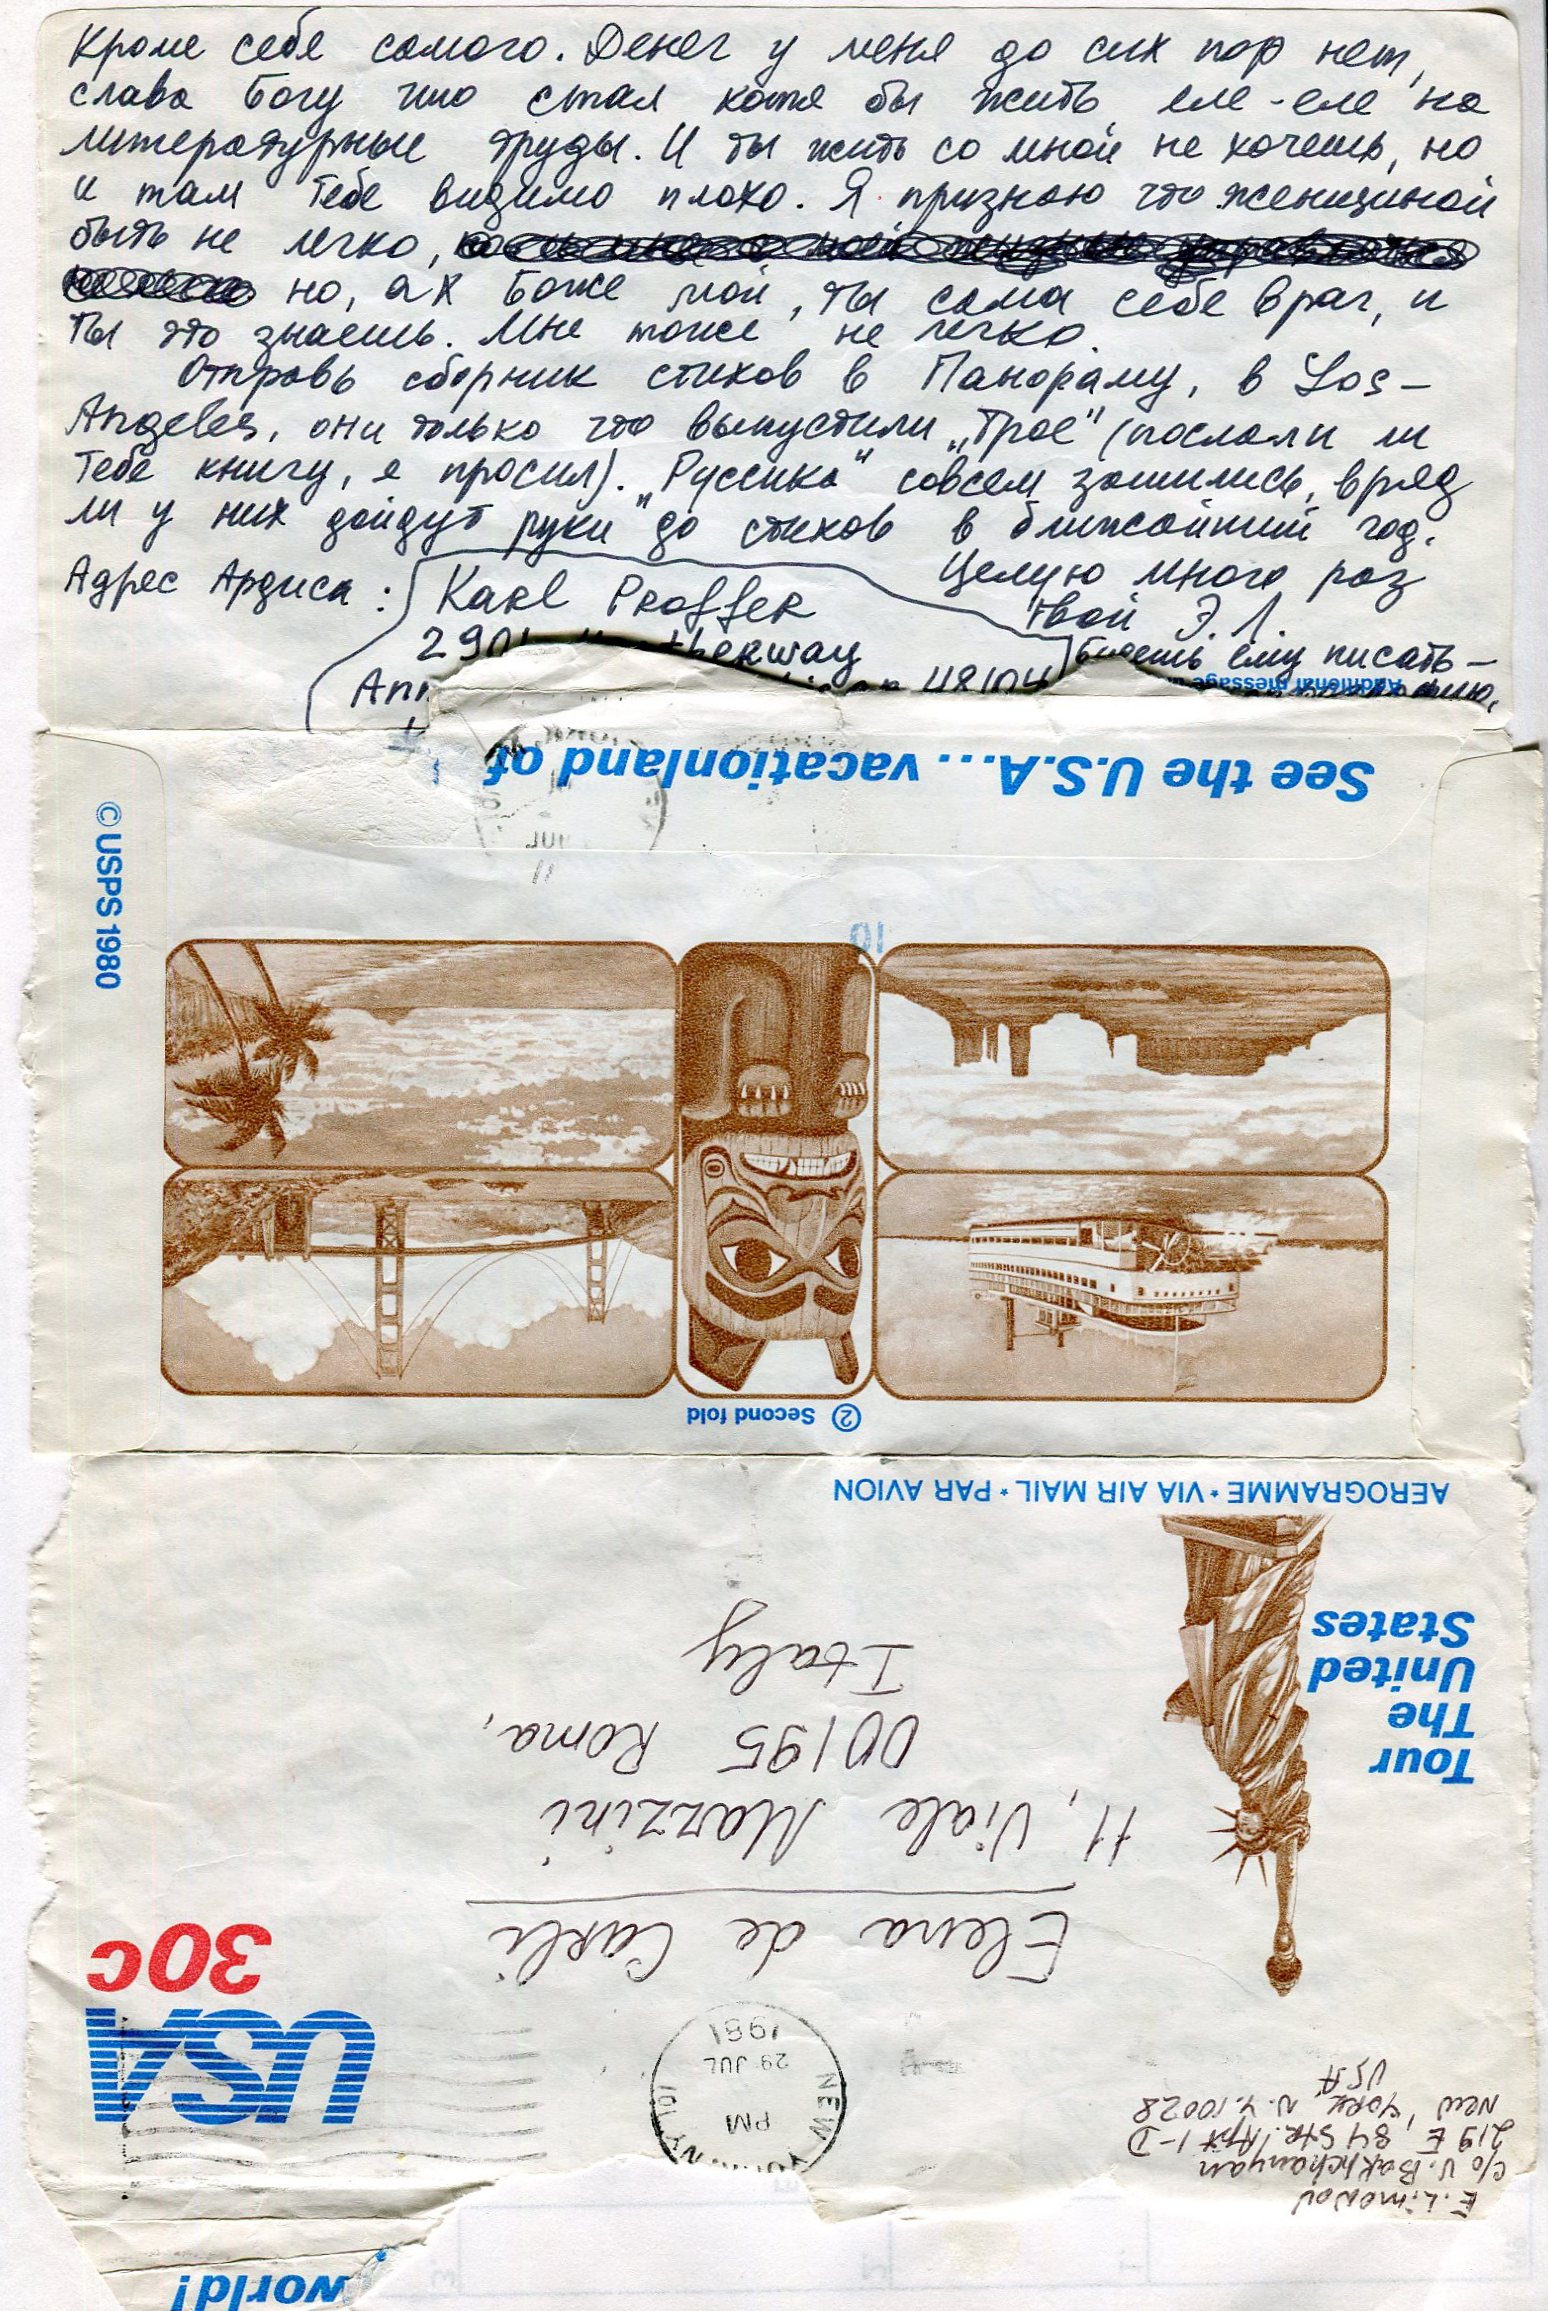 Кроме себя самого. Денег у меня до сих пор нет,
слава Богу что стал хотя бы жить еле-еле на
литературные труды. И ты жить со мной не хочешь, но
и там тебе видимо плохо. Я признаю что женщиной
быть не легко,
но, ах Боже мой, ты сама себе враг, и
ты это знаешь. Мне тоже не легко.
Отправь сборник стихов в Панораму, в Los-
Angeles, они только что выпустили „Трое" (послали ли
тебе книгу, я просил). „Руссика" совсем зашились, вряд
ли у них „дойдут руки" до стихов в ближайший год.
Целую много раз
твой Э. Л.
Адрес Ардиса:
Karl Proffer
290 therway
Ann 48104
Будешь ему писать —
Additional message
See the U.S.A.... vacationland of
© USPS 1980
JUL
10
② Second fold
AEROGRAMME • VIA AIR MAIL • PAR AVION
Tour
The
United
States
Elena de Carli
11, Viale Mazzini
00195 Roma,
Italy
USA
30c
NEW YORK, NY 101
PM
29 JUL
1981
E. Limonov
c/o V. Bakhchanyan
219 E, 84 Str. Apt 1-D
New York, N.Y. 10028
USA
world!